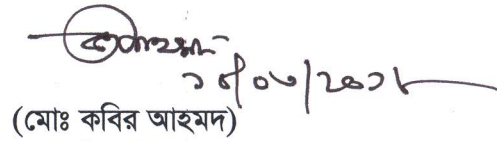 ১৪/০৩/২০১৮
(মোঃ কবির আহমদ)